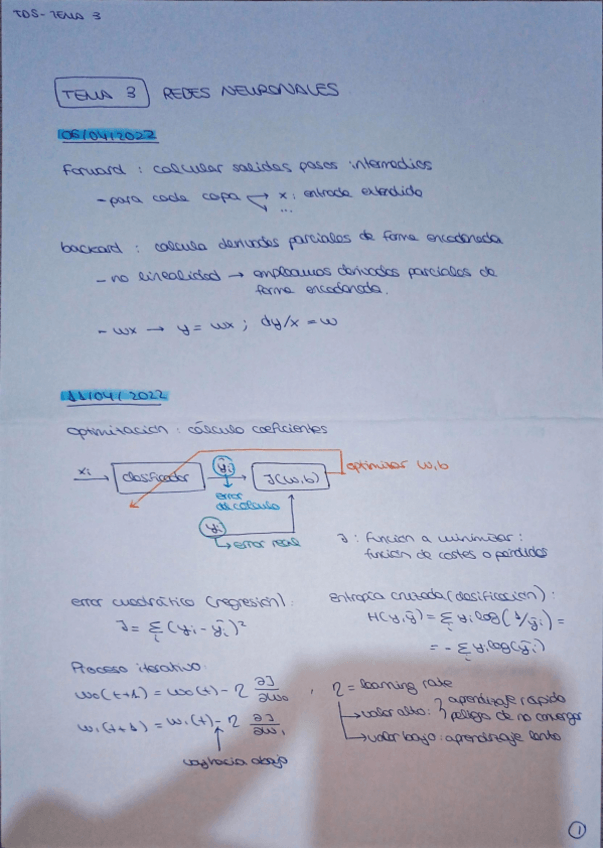 TDS - TEMA 3
TEMA 3 REDES NEURONALES
06/04/2022
Forward : calcular salidas pasos intermedios
- para cada capa → x : entrada extendida
...
backard : calcula derivadas parciales de forma encadenada
- no linealidad → empleamos derivadas parciales de
forma encadenada.
- wx → y = wx ; dy/x = w
11/04/2022
optimización : cálculo coeficientes
xi → clasificador → ỹi → J(w,b) optimizar w,b
error
de cálculo
yi
error real
J : función a minimizar :
función de costes o pérdidas
error cuadrático (regresión) :
J = Σi (yi - ỹi)²
entropía cruzada (clasificación) :
H(y,ỹ) = Σi yi log(1/ỹi) =
= - Σi yi log(ỹi)
Proceso iterativo:
w0(t+1) = w0(t) - η ∂J/∂w0 , η = learning rate
w1(t+1) = w1(t) - η ∂J/∂w1
voy hacia abajo
→ valor alto : } aprendizaje rápido
peligro de no converger
→ valor bajo : aprendizaje lento
1